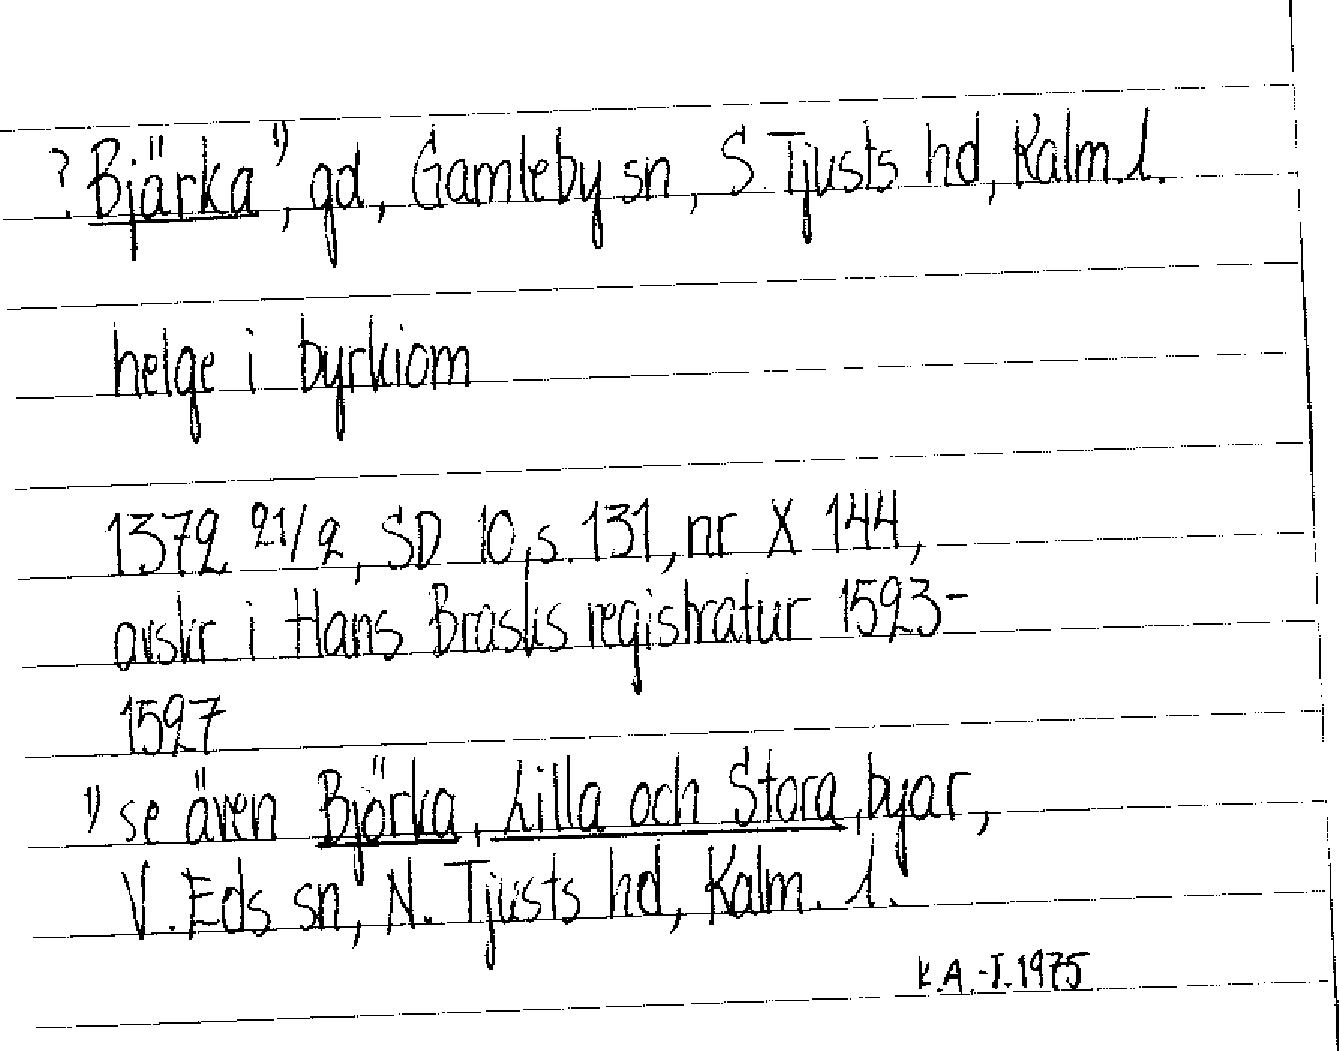 ? Bjärka¹⁾, gd, Gamleby sn, S Tjusts hd, Kalm. l.
helge i byrkiom
1372 21/2, SD 10, s. 131, nr X 144,
avskr i Hans Brasks registratur 1523-
1527
¹⁾ se även Björka, Lilla och Stora, byar,
V. Eds sn, N. Tjusts hd, Kalm. l.
K.A.-I.1975